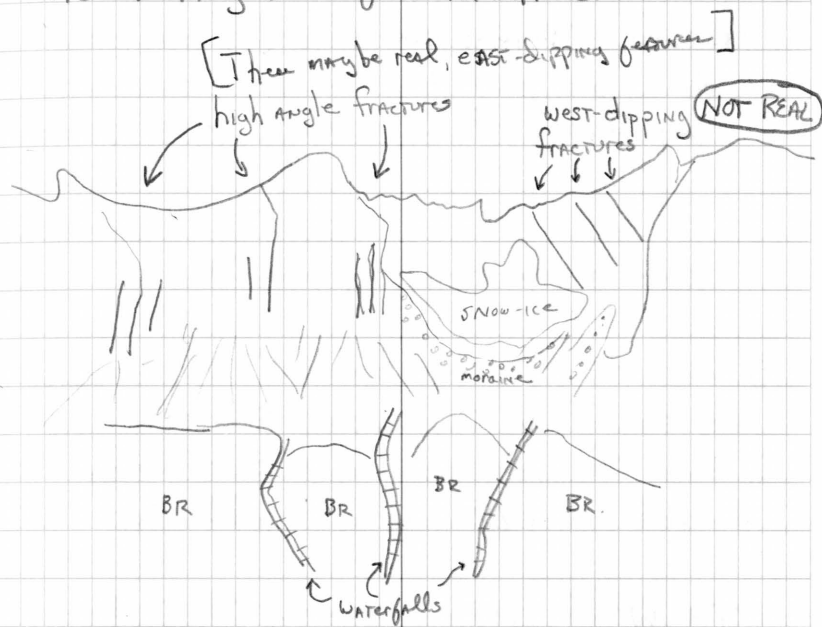 [These maybe real, east-dipping features]
high angle fractures
west-dipping
fractures
NOT REAL
SNOW-ICE
moraine
BR
BR
BR
BR.
waterfalls